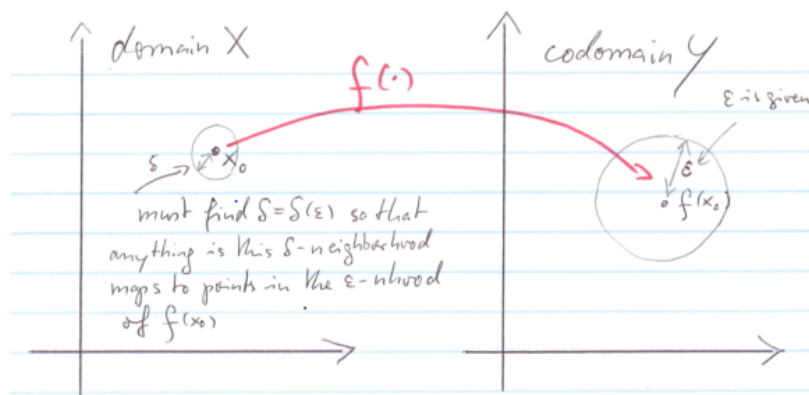 domain X
codomain Y
f(·)
ε is given
δ
x₀
ε
f(x₀)
must find δ=δ(ε) so that
anything is this δ-neighborhood
maps to points in the ε-nhood
of f(x₀)